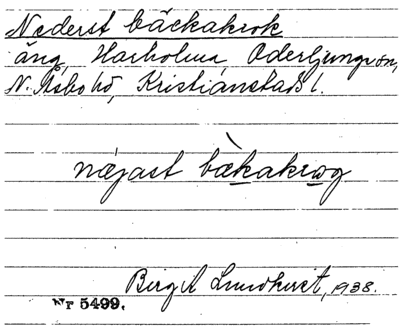 Nederst bäckakrok
äng, Harholma, Oderljunga sn,
N. Åsbo hd, Kristianstads l.
næjast bækakrog
Birgit Lundkvist, 1938.
Nr 5499.